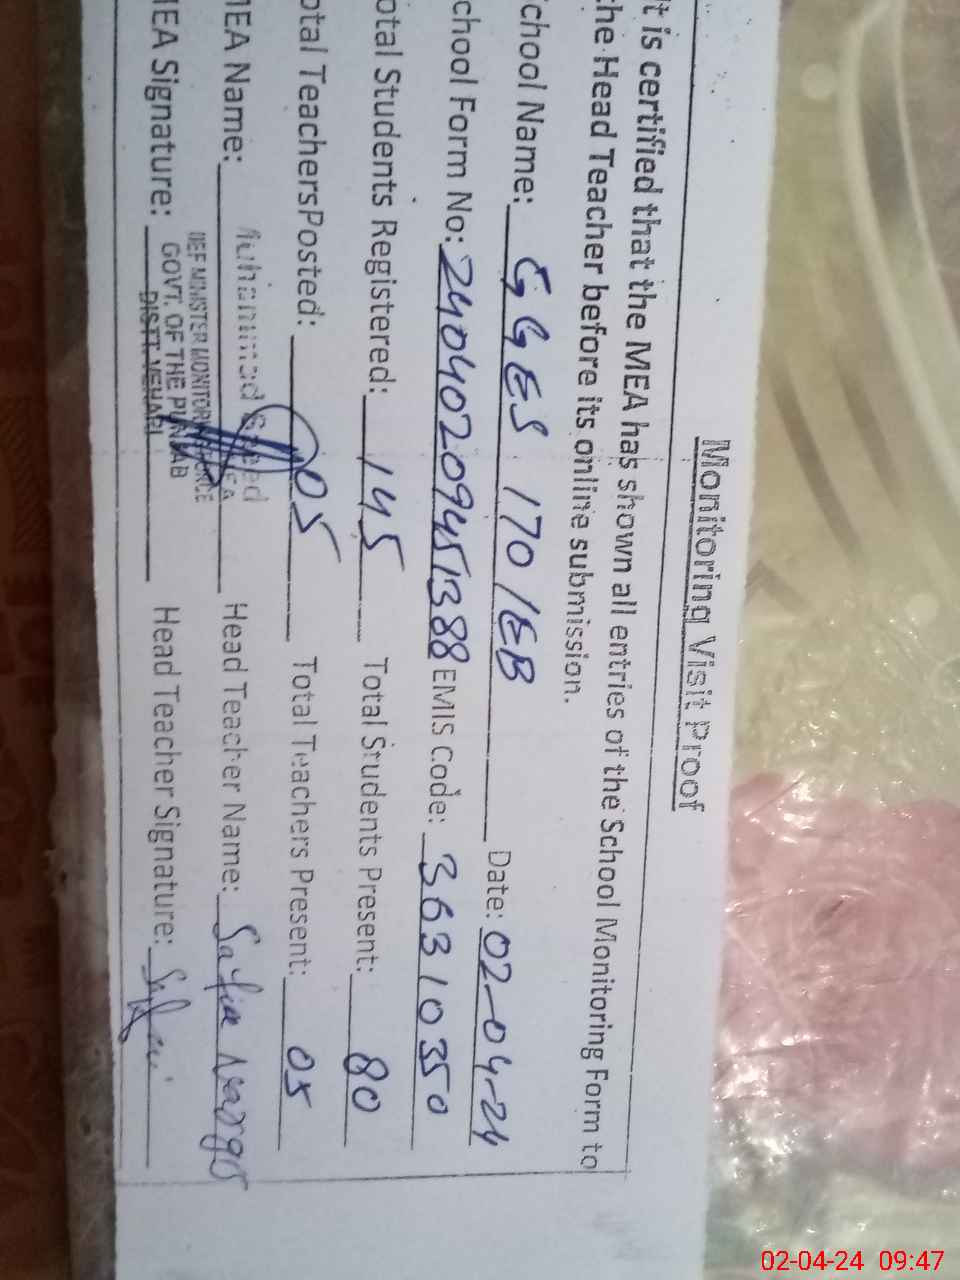 Monitoring Visit Proof
It is certified that the MEA has shown all entries of the School Monitoring Form to
the Head Teacher before its online submission.
chool Name: GGES 170/EB Date: 02-04-24
chool Form No: 24040209451388 EMIS Code: 36310350
otal Students Registered: 145 Total Students Present: 80
otal TeachersPosted: 05 Total Teachers Present: 05
MEA Name: Muhammad Head Teacher Name: Safia Nargis
MEA Signature: Head Teacher Signature:
GOVT. OF THE PUNJAB
DISTT. VEHARI
02-04-24 09:47